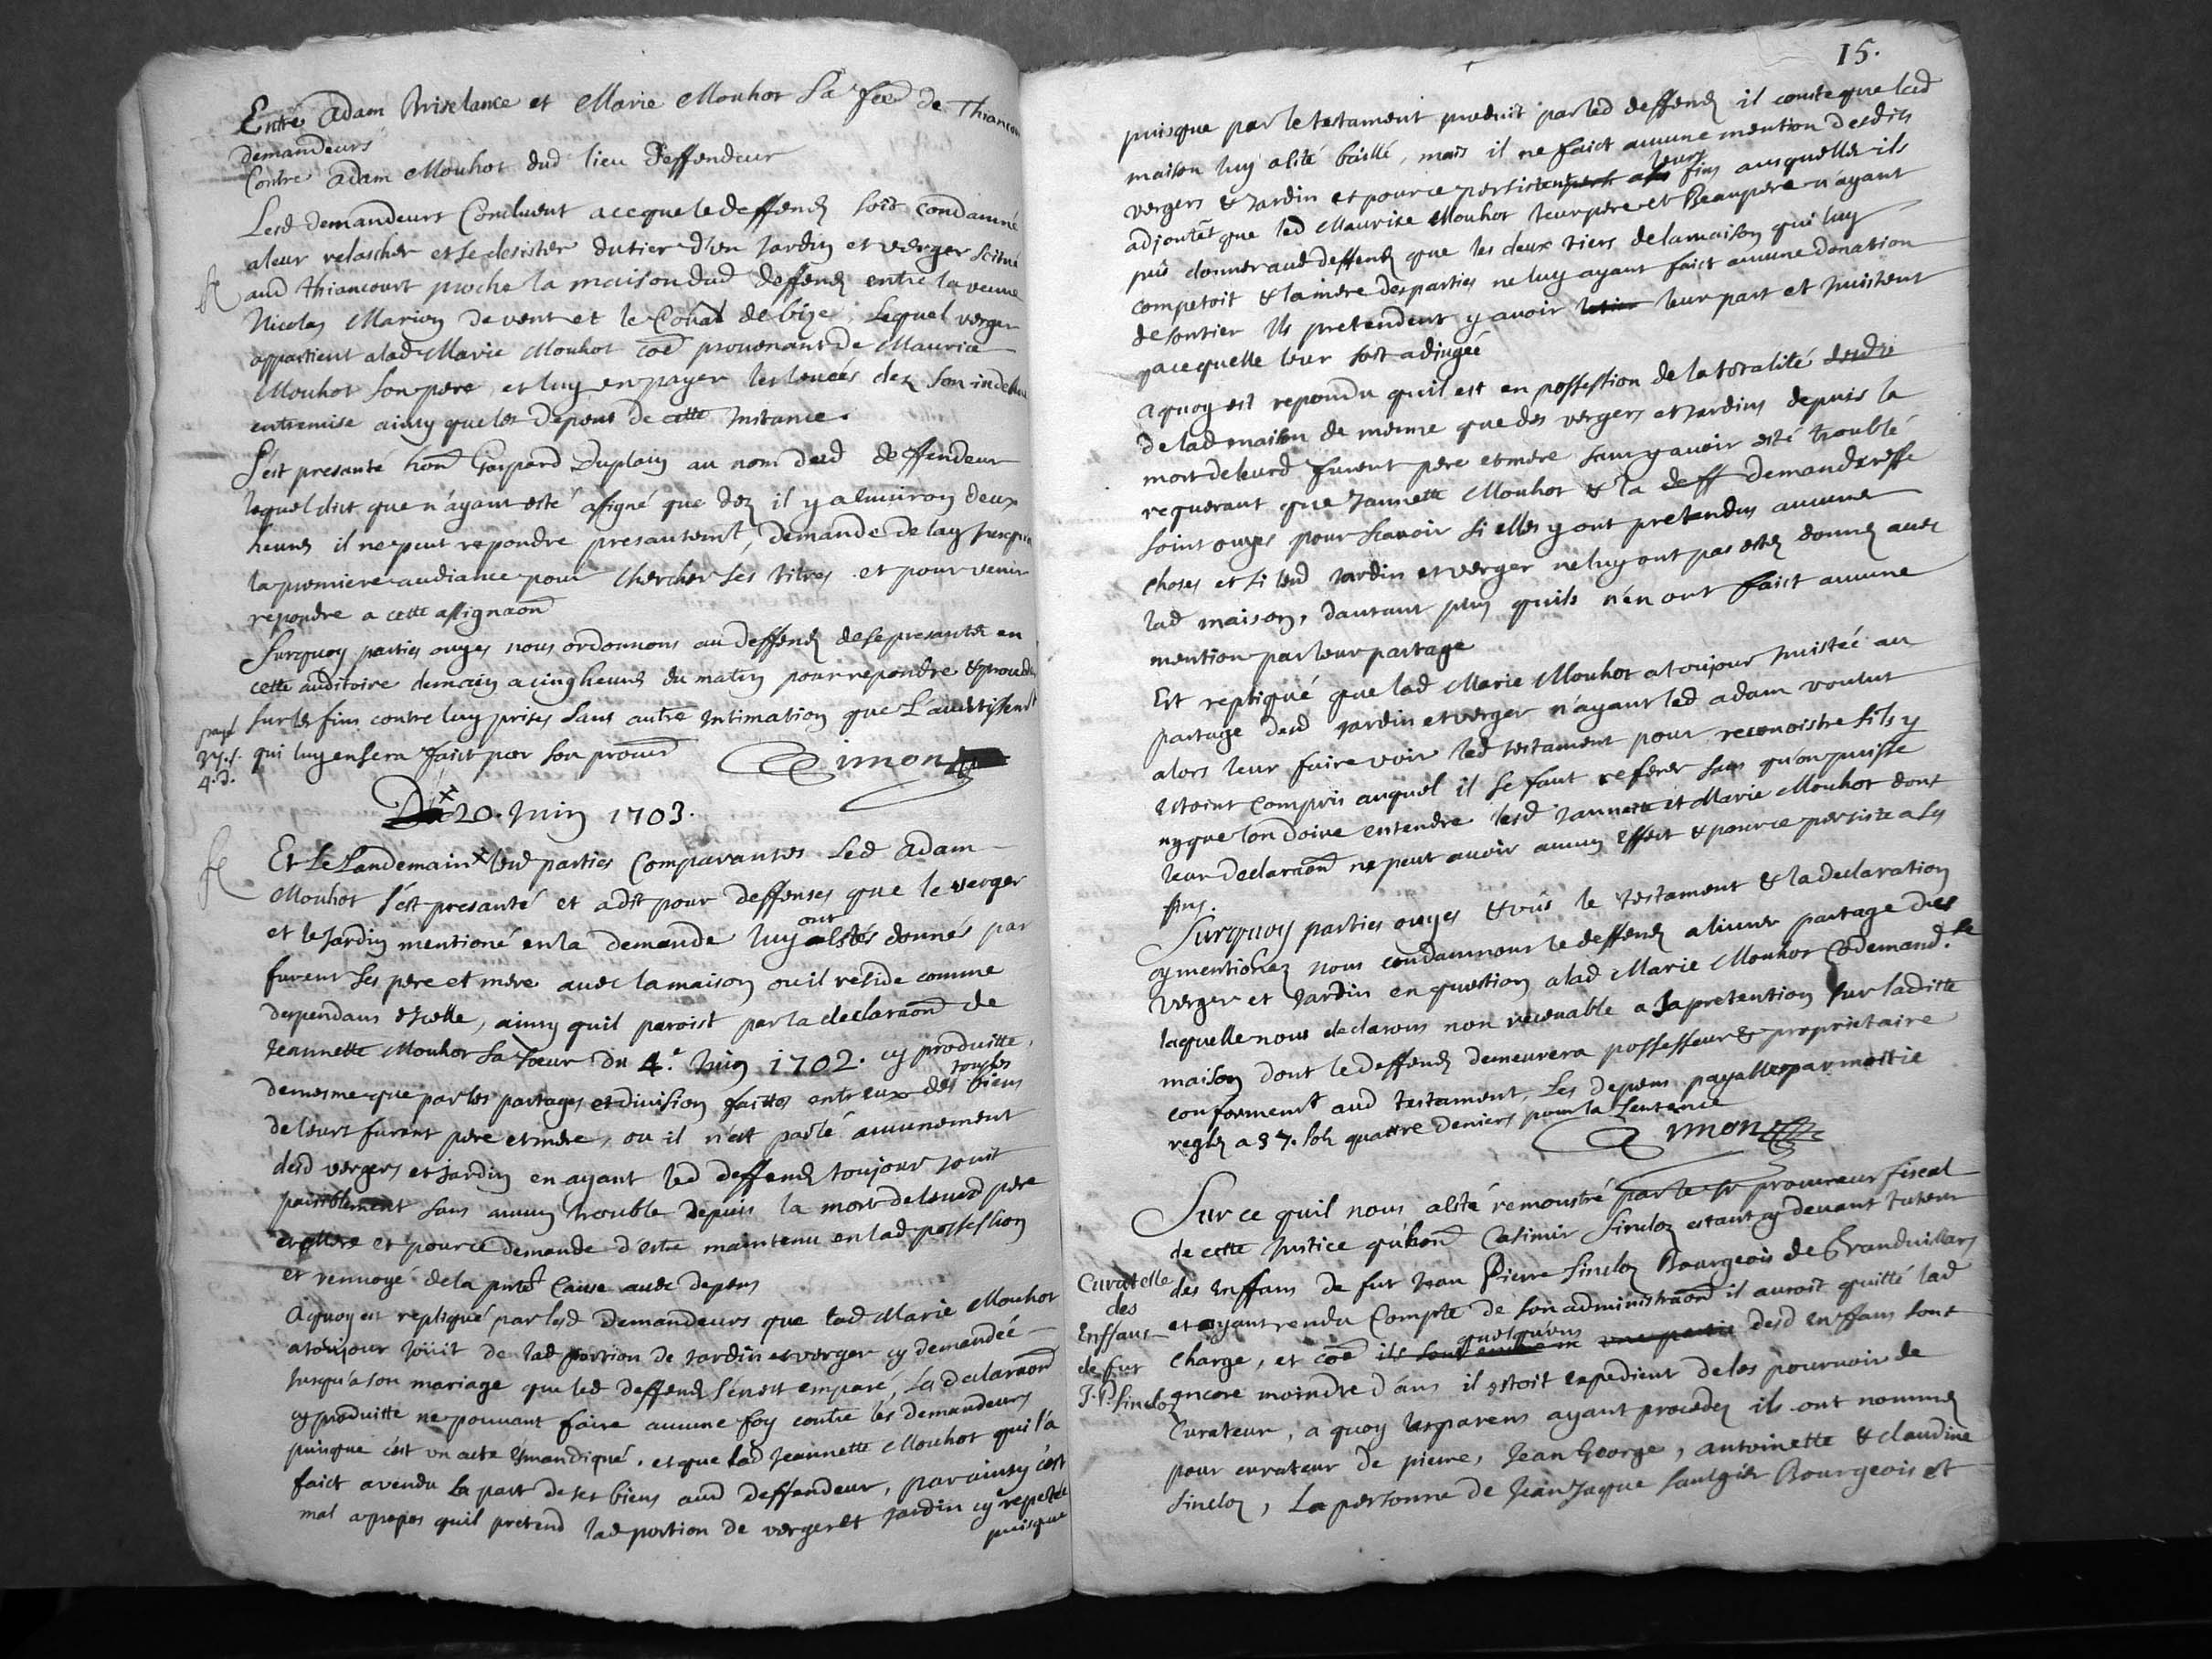 Entre Adam Briselance et Marie Mouhot Sa fee de Thiancou
demandeurs
Contre Adam Mouhot dud lieu deffendeur
Lesd demandeurs Concluent a ce que le deffend soit condamné
a leur relascher et se desister du tier d'un Jardin et verger scitué
aud Thiancourt proche la maison dud deffend entre la veuve
Nicolas Marion de vent et le de bize, Lequel verger
appartient a lad Marie Mouhot coe provenant de Maurice
Mouhot son pere, et luy en payer les loucés dez son indehue
entremise ainsy que les depens de cette Instance.
S'est presanté hon Gaspard Duplain au nom dud deffendeur
lequel dict que n'ayant esté assigné que dez il y a lenviron deux
heures il ne peut repondre presantemt, demande delay jusqu'a
la premiere audiance pour chercher ses titres et pour venir
repondre a cette assignaon
Surquoy parties ouyes nous ordonnons au deffend de se presanter en
cette auditoire demain a cinq heures du matin pour repondre & proceder
sur les fins contre luy prises sans autre intimation que L'avertissemt
qui luy en sera faict par son procur Simon
payé
4.d.
Du 20. Juin 1703.
Et Le Landemain lesd parties Comparantes Led Adam
Mouhot s'est presanté et a dit pour deffenses que le verger
et le Jardin mentioné en la demande luy ont estés donnés par
furent ses pere et mere avec la maison ou il reside comme
dependans d'icelle, ainsy quil paroist par la declaraon de
Jeannette Mouhot sa soeur du 4.e Juin 1702. cy produitte,
de mesme que par les partages et division faittes entr eux de tous les biens
de leurs furent pere et mere, ou il n'est parlé aucunement
desd vergers et Jardin en ayant led deffend toujour jouit
paisiblement sans aucun trouble depuis la mort de leursd pere
et mere et pour ce demande d'estre maintenu en lad possession
et renvoyé de la pnte Cause avec depens
A quoy est repliqué par lesd demandeurs que lad Marie Mouhot
a toujour jouit de lad portion de Jardin et verger cy demandée
jusqu'a son mariage que led deffend s'en est emparé, La declaraon
cy produitte ne pouvant faire aucune foy contre les demandeurs
puisque c'est un acte mandiqué, et que lad Jeannette Mouhot qui l'a
faict a vendu la part de ses biens aud deffendeur, par ainsy c'est
mal a propos quil pretend lad portion de verger et Jardin cy repetée
puisque
15.
puisque par le testament produit par led deffend il conste que lad
maison luy a esté baillé, mais il ne faict aucune mention desdits
vergers & Jardin et pour ce persistent a leurs fins ausquelles ils
adjoutet que led Maurice Mouhot leur pere et Beaupere n'ayant
pus donner aud deffend que les deux tiers de la maison qui luy
competoit & la mere des parties ne luy ayant faict aucune donation
de son tier Ils pretendent y avoir leur part et insistent
a ce quelle leur soit adjugée
A quoy est repondu quil est en possession de la totalité
de lad maison de mesme que des vergers et Jardins depuis la
mort de leurd furent pere et mere sans y avoir esté troublé
requerant que Jannette Mouhot & la deff demanderesse
soint ouyes pour scavoir si elles y ont pretendus aucune
choses et si lesd Jardin et verger ne luy ont pas estez donnez avec
lad maison, dautant plus quils n'en ont faict aucune
mention par leur partage
Est repliqué que lad Marie Mouhot a toujour insistée au
partage desd Jardin et verger n'ayant led Adam voulut
alors leur faire voir led testament pour reconoistre sils y
estoint compris auquel il se faut referer sans qu'on puisse
ny que lon doive entendre lesd Jannette et Marie Mouhot dont
leur declaraon ne peut avoir aucun effect & pour ce persiste a ses
fins.
Surquoy parties ouyes & vüs le testament & la declaration
cy mentionez nous condamnons le deffend a livrer partage des
verger et Jardin en question a lad Marie Mouhot Codemand.se
laquelle nous declarons non recevable a sa pretention sur laditte
maison dont le deffend demeurera possesseur & proprietaire
conformemt aud testament, Les depens payables par moitie
reglez a 37. sols quattre deniers pour la sentence
Simon
Sur ce quil nous a esté remonstré par le Sr procureur fiscal
de cette Justice qu'hon Casimir Sincloz estant cy devant tuteur
des enffans de fut Jean Pierre Sincloz Bourgeois de Grandvillars
et ayant rendu Compte de son administraon il auroit quitté lad
charge, et coe quelqu'uns desd enffans sont
encore moindre d'ans il estoit expedient de les pourvoir de
Curateur, a quoy les parens ayant procedez ils ont nommez
pour curateur de pierre, Jean George, antoinette & claudine
Sincloz, La personne de Jean Jaque Saulgier Bourgeois et
Curatelle
des
Enffans
de fut
J. P. Sincloz